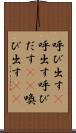 呼び出す
呼出す呼び
だす 喚
び出す